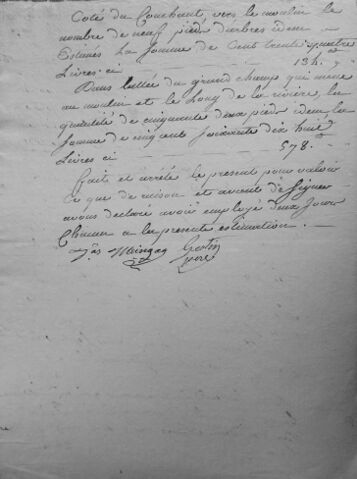 Coté du Couchant, vers le moulin le
nombre de neuf pied d'arbres idem
Estimés la somme de Cent trente quatre
Livres ci — 134. "
Dans l'allée du grand champs qui mene
au moulin et le Long de la riviere, la
quantité de cinquante deux pied idem la
somme de cinq cent soixante dix huit
Livres ci — 578. "
fait et arrêté le present pour valoir
Ce que de raison et avant de signer
avons declaré avoir employé deux Jours
Chacun a la presente estimation.